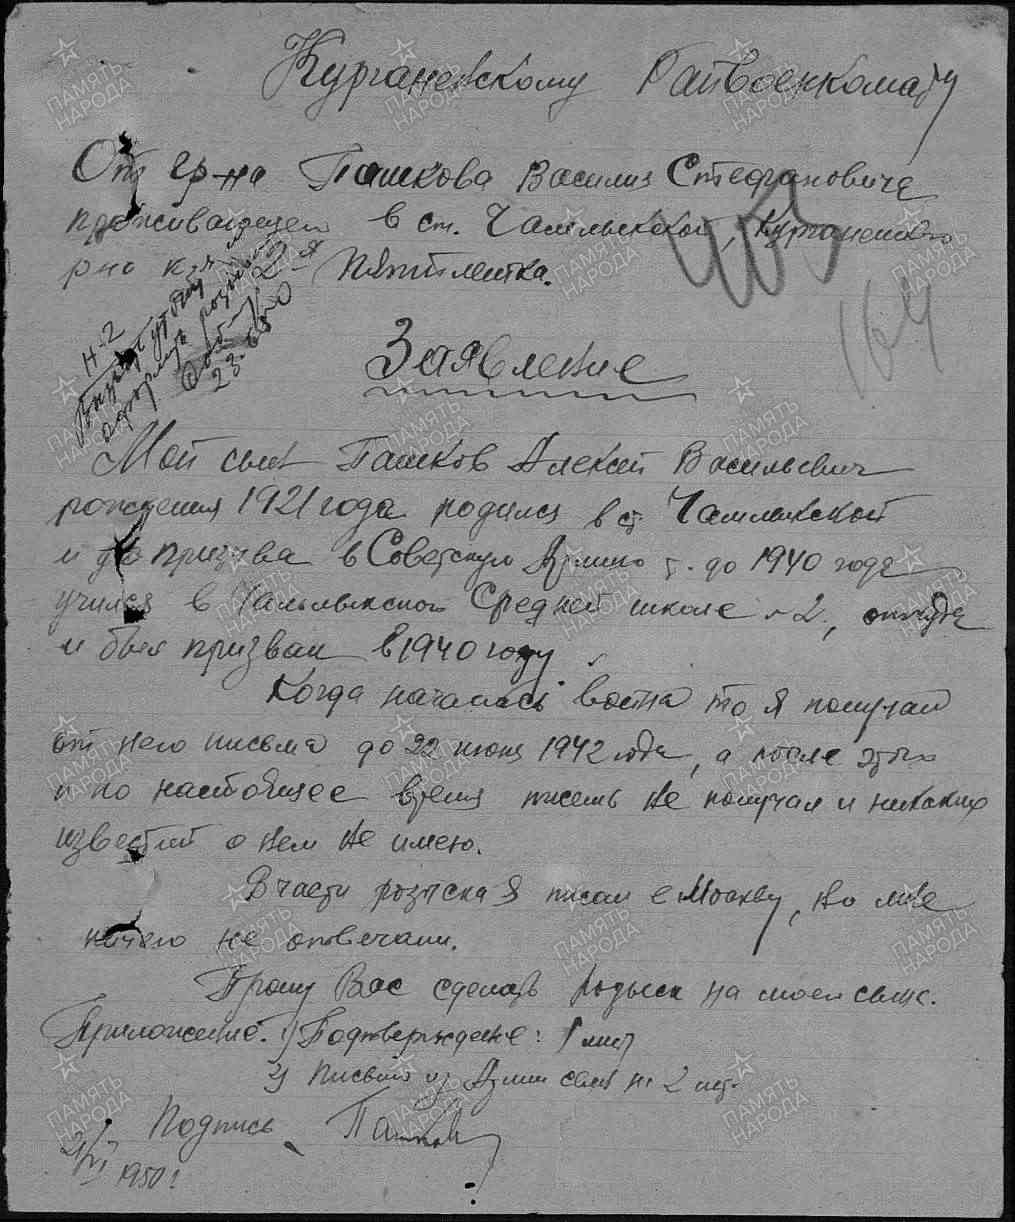 Курганенскому Райвоенкомату
От гр-на Пашкова Василия Стефановича
проживающем в ст. Чамлыкской, Курганенского
р-на к-з Пятилетка.
163
164
Н-2
оформить розыск
23.6.50
Заявление
Мой сын Пашков Алексей Васильевич
рождения 1921 года родился в ст. Чамлыкской
и до призыва в Советскую Армию т. до 1940 года
учился в Чамлыкской Средней школе №2, откуда
и был призван в 1940 году.
Когда началась война то я получал
от него письма до 22 июня 1942 года, а после этого
и по настоящее время писем не получал и никаких
известий о нем не имею.
В части розыска я писал в Москву, но мне
ничего не отвечали.
Прошу Вас сделать розыск на моего сына.
Приложение. 1) Подтверждение: 1 лист
2) Письма из Армии сына на 2 шт.
Подпись Пашков
21/VI 1950 г.
ПАМЯТЬ НАРОДА